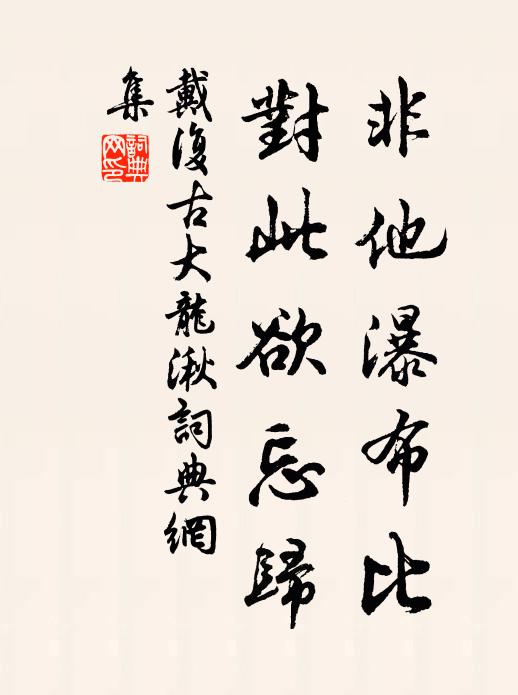 非他瀑布比
對此欲忘歸
戴復古大龍湫詞典網
集
詞典
網印